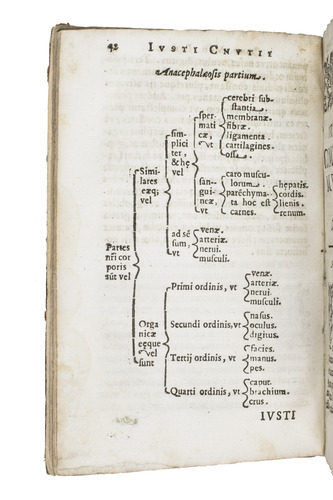 42 IVSTI CNVTII
Anacephalæosis partium.
Partes
nri cor
poris
aut vel
Simi
lares
eæq;
vel
simpliciter,
& hę
vel
spermaticæ,
vt
cerebri substantia.
membranæ.
fibræ.
ligamenta.
cartilagines.
ossa.
sanguineæ,
vt
caro musculorum.
parēchymata hoc est
carnes.
hepatis.
cordis.
lienis.
renum.
ad sēsum,
vt
venæ.
arteriæ.
nerui.
musculi.
Organicæ
eęque
vel
sunt
Primi ordinis, vt
venæ.
arteriæ.
nerui.
musculi.
Secundi ordinis, vt
nasus.
oculus.
digitus.
Tertij ordinis, vt
facies.
manus.
pes.
Quarti ordinis, vt
caput.
brachium.
crus.
IVSTI